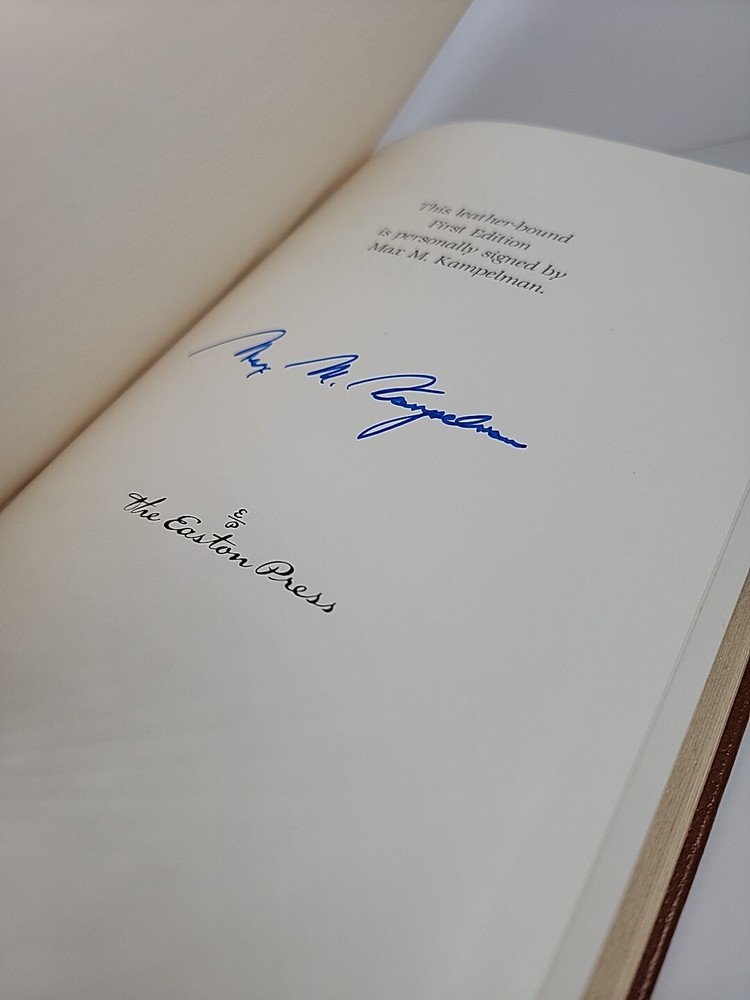 This leather-bound
First Edition
is personally signed by
Max M. Kampelman.
Max M. Kampelman
E/P
the Easton Press